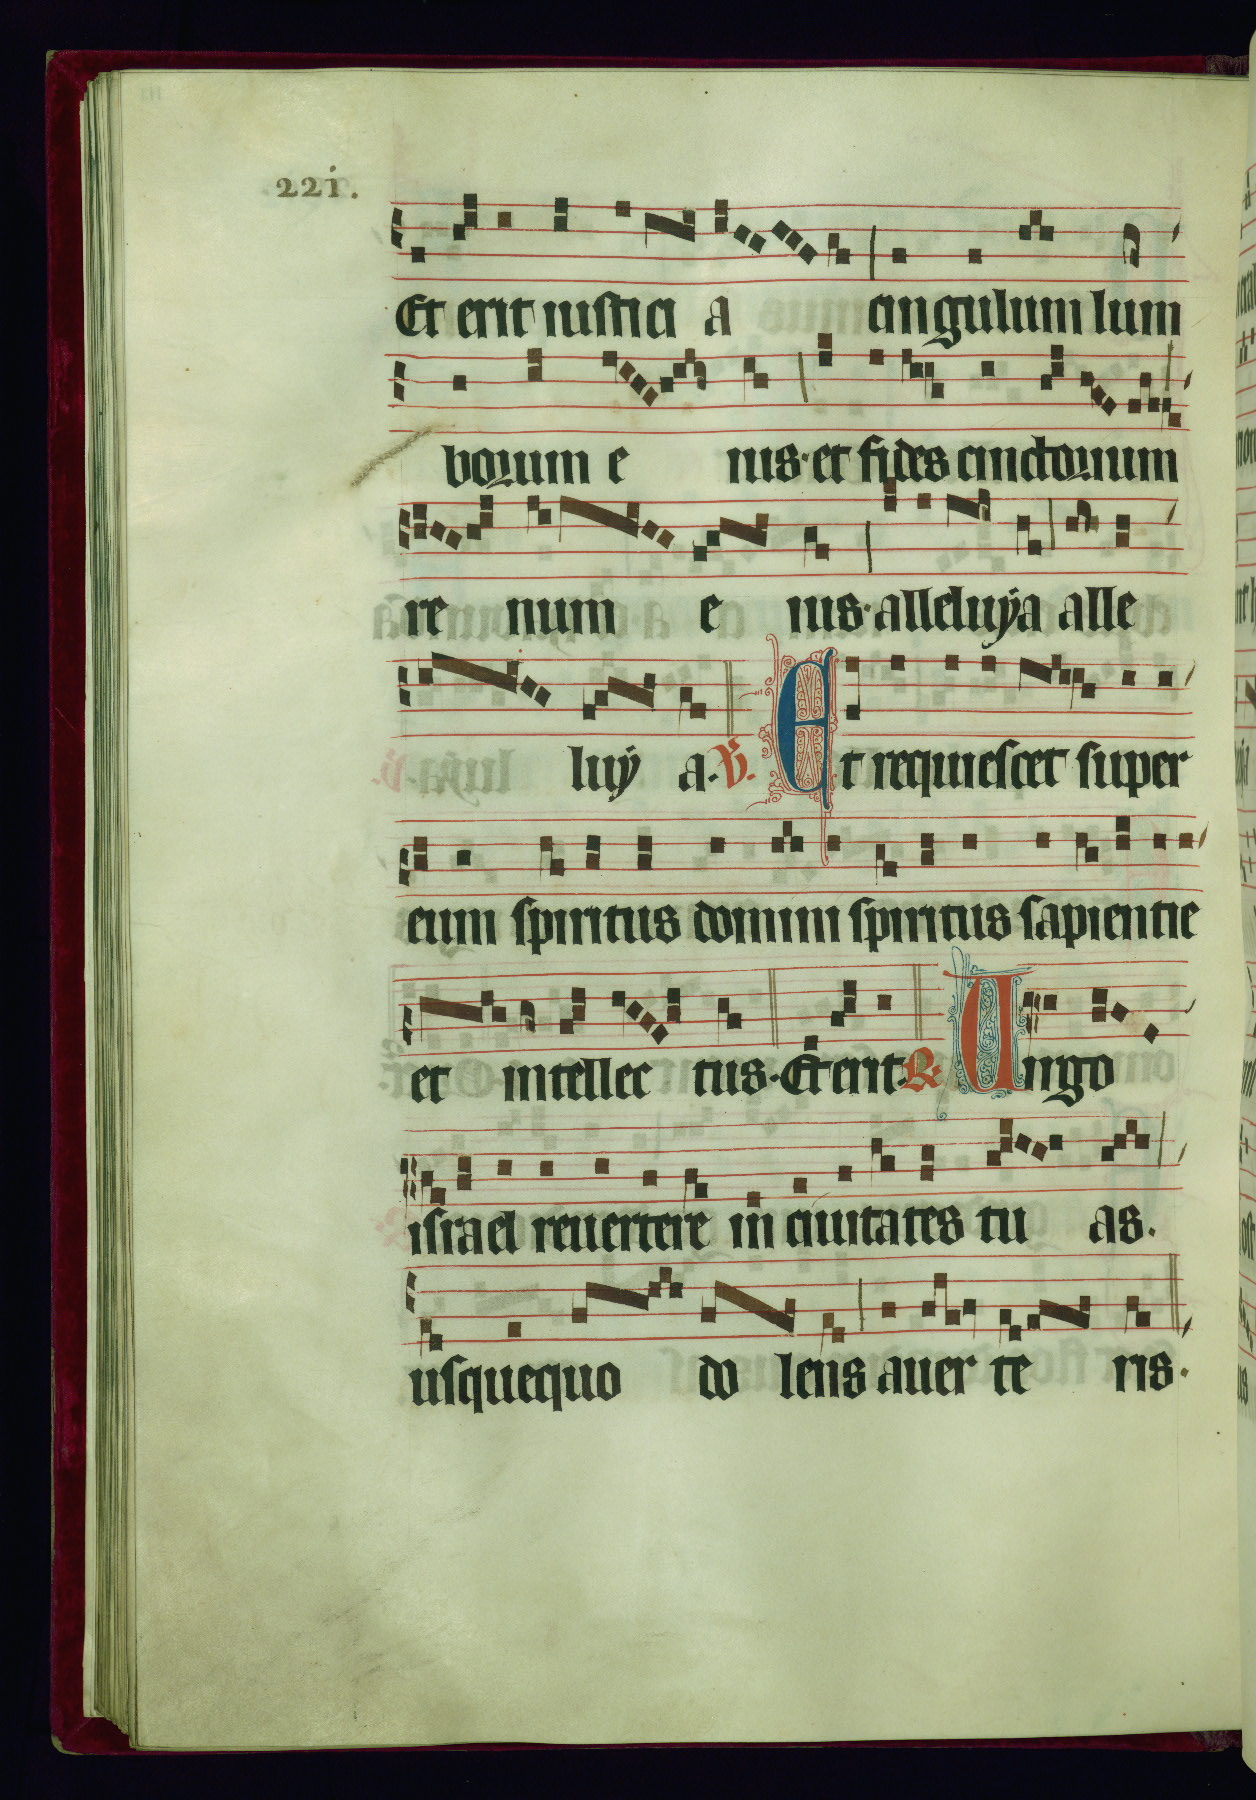 221.
Et erit iusticia cingulum lum
borum eius. et fides cinctorium
renum eius. alleluÿa alle
luÿa. V. Et requiescet super
eum spiritus domini spiritus sapientie
et intellectus. Et erit. R. Uirgo
israel reuertere in ciuitates tuas.
usquequo dolens auerteris.